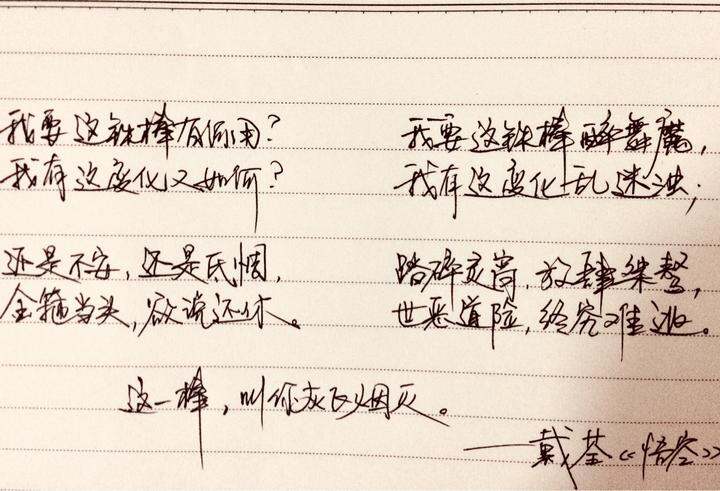 我要这铁棒有何用？
我有这变化又如何？
还是不安，还是氐惆，
金箍当头，欲说还休。
我要这铁棒醉舞魔，
我有这变化乱迷浊；
踏碎灵霄，放肆桀骜，
世恶道险，终究难逃。
这一棒，叫你灰飞烟灭。
——戴荃《悟空》